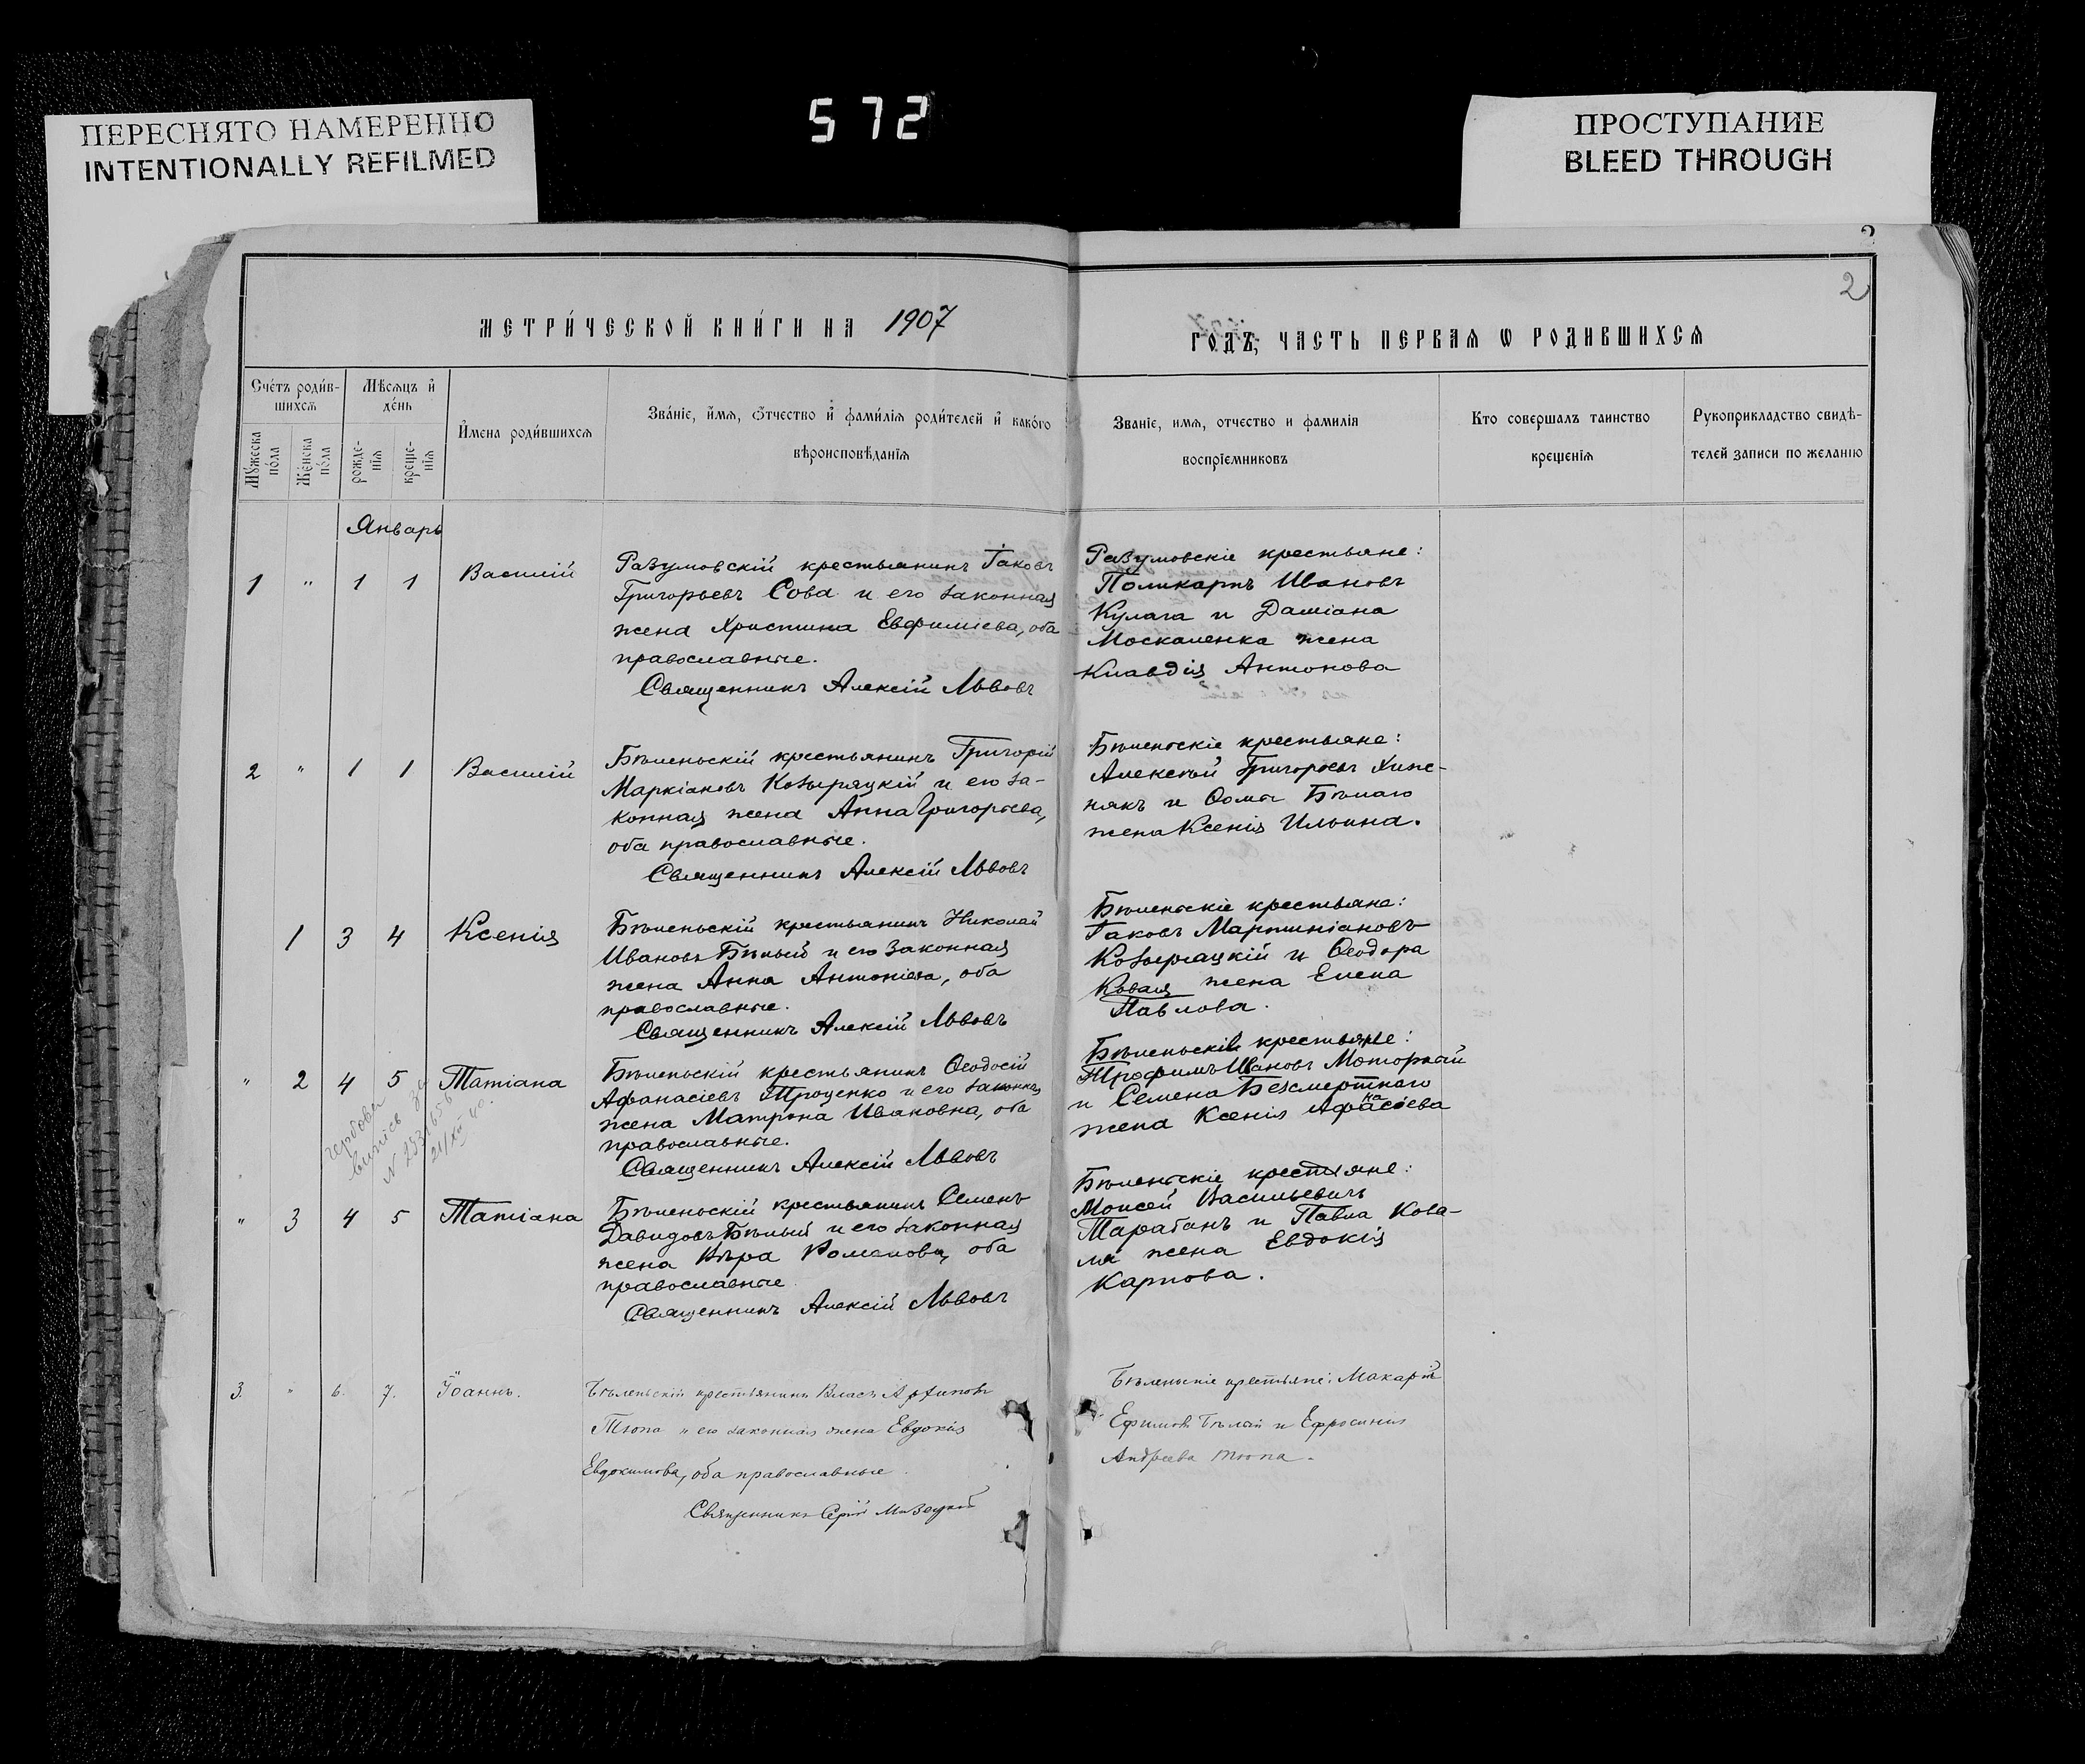 ПЕРЕСНЯТО НАМЕРЕННО
INTENTIONALLY REFILMED
572
ПРОСТУПАНИЕ
BLEED THROUGH
2
2
МЕТРИ́ЧЕСКОЙ КНИ́ГИ НА 1907
ГОДЪ, ЧАСТЬ ПЕРВАѦ Ѡ РОДИВШИХСѦ
Сче́тъ роди́в-
шихсѧ
Мѣ́сѧцъ и҆
де́нь
Мꙋ́жеска
по́ла
Же́нска
по́ла
рожде-
нїѧ
креще-
нїѧ
И҆мена роди́вшихсѧ
Зва́нїе, и҆́мѧ, ѻ҆́тчество и҆ фами́лїѧ роди́телей и҆ како́го
вѣроисповѣ́данїѧ
Званїе, имѧ, отчество и фамилїѧ
воспрїемниковъ
Кто совершалъ таинство
крещенїѧ
Рукоприкладство свидѣ-
телей записи по желанїю
Январь
1 " 1 1 Василій
Разумовскій крестьянинъ Іаковъ
Григорьевъ Сова и его законная
жена Христина Евфиміева, оба
православные.
Священникъ Алексій Львовъ
Разумовскіе крестьяне:
Поликарпъ Ивановъ
Кулага и Даміана
Москаленка жена
Клавдія Антонова
2 " 1 1 Василій
Бѣленьскій крестьянинъ Григорій
Маркіановъ Козыряцкій и его за-
конная жена Анна Григорьева,
оба православные.
Священникъ Алексій Львовъ
Бѣленьскіе крестьяне:
Алексѣй Григорьевъ
някъ и Ѳомы Бѣлаго
жена Ксенія Ильина.
1 3 4 Ксенія
Бѣленьскій крестьянинъ Николай
Ивановъ Бѣлый и его законная
жена Анна Антоніева, оба
православные.
Священникъ Алексій Львовъ
Бѣленьскіе крестьяне:
Іаковъ Мартиніановъ
Козыряцкій и Ѳеодора
Коваля жена Елена
Павлова.
" 2 4 5 Татіана
Бѣленьскій крестьянинъ Ѳеодосій
Афанасіевъ Троценко и его законная
жена Матрона Ивановна, оба
православные.
Священникъ Алексій Львовъ
Бѣленьскіе крестьяне:
Трофимъ Ивановъ Моторный
и Семена Безсмертнаго
жена Ксенія Афанасіева
" 3 4 5 Татіана
Бѣленьскій крестьянинъ Семенъ
Давидовъ Бѣлый и его законная
жена Вѣра Романова, оба
православные
Священникъ Алексій Львовъ
Бѣленьскіе крестьяне:
Моисей Васильевичъ
Тарабанъ и Павла Кова-
ля жена Евдокія
Карпова.
3. " 6. 7. Іоаннъ.
Бѣленьскій крестьянинъ Власъ Архиповъ
Тюпа и его законная жена Евдокія
Евдокимова, оба православные.
Священникъ
Бѣленьскіе крестьяне: Макарій
Ефимовъ Бѣлый и Ефросинія
Андреева Тюпа.